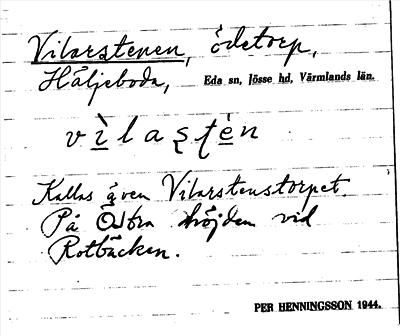 Vilarstenen, ödetorp,
Häljeboda, Eda sn, Jösse hd, Värmlands län.
v ì l a ș t é n
Kallas även Vilarstenstorpet.
På Östra höjden vid
Rotbäcken.
PER HENNINGSSON 1944.